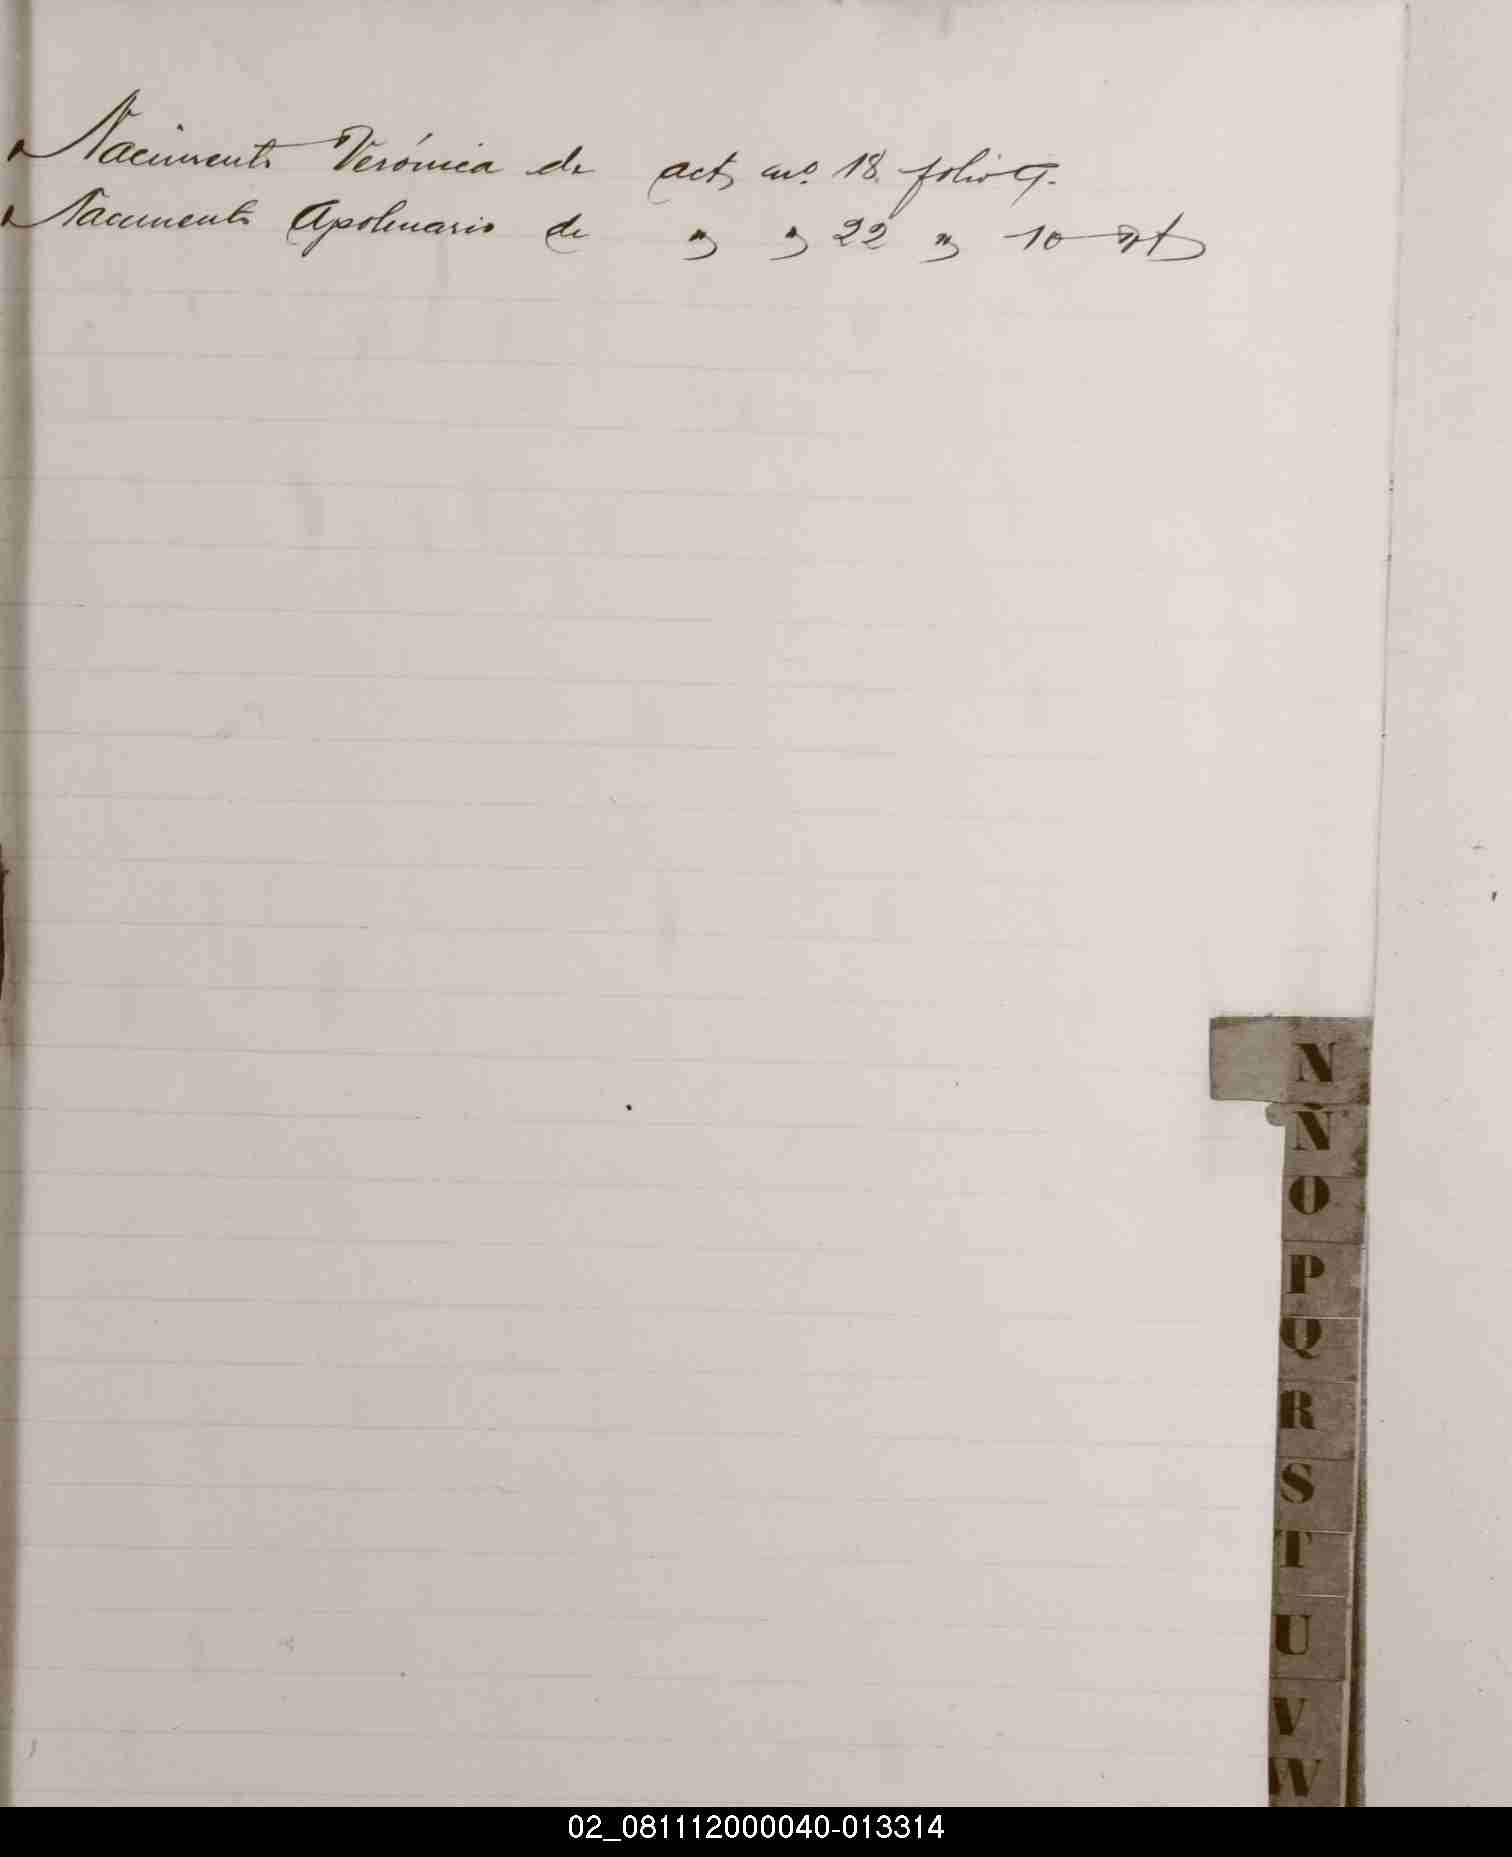 Nacimento Verónica de act, nº 18 folio 9.
Nacimento Apolinario de " " 22 " 10 vt
N
Ñ
O
P
Q
R
S
T
U
V
W
02_081112000040-013314